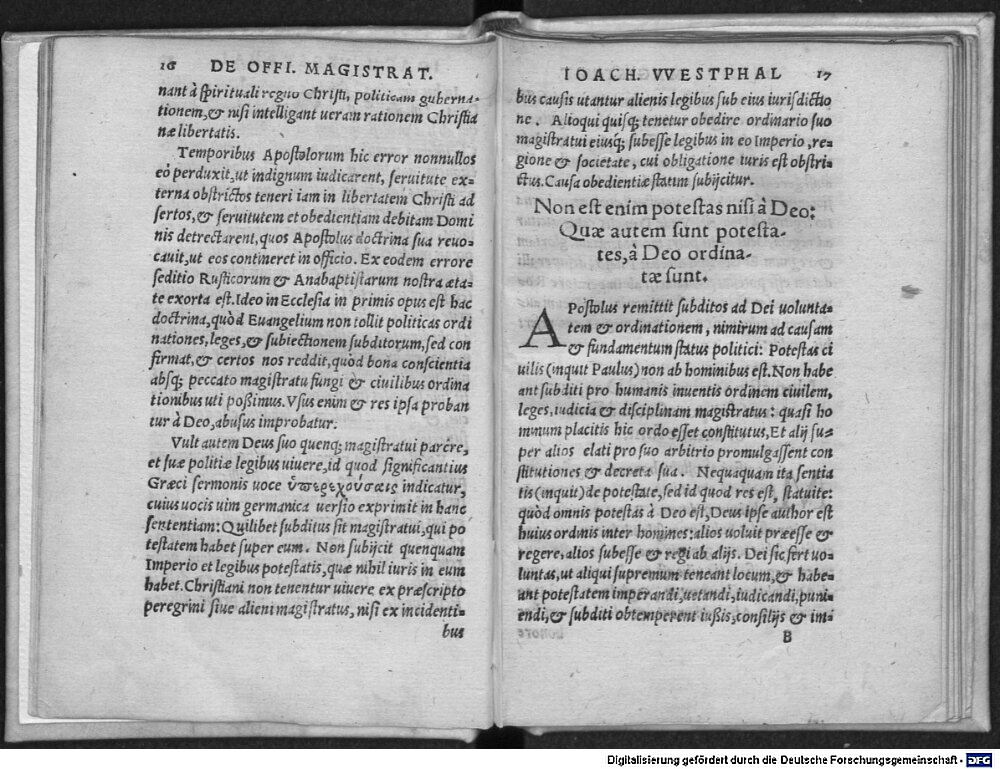 16 DE OFFI. MAGISTRAT.
nant à spirituali regno Christi, politicam guberna-
tionem, & nisi intelligant ueram rationem Christia
næ libertatis.
Temporibus Apostolorum hic error nonnullos
eò perduxit, ut indignum iudicarent, seruitute ex-
terna obstrictos teneri iam in libertatem Christi ad
sertos, & seruitutem et obedientiam debitam Domi
nis detrectarent, quos Apostolus doctrina sua reuo-
cauit, ut eos contineret in officio. Ex eodem errore
seditio Rusticorum & Anabaptistarum nostra æta-
te exorta est. Ideo in Ecclesia in primis opus est hac
doctrina, quòd Euangelium non tollit politicas ordi
nationes, leges, & subiectionem subditorum, sed con
firmat, & certos nos reddit, quòd bona conscientia
absq; peccato magistratu fungi & ciuilibus ordina
tionibus uti possimus. Vsus enim & res ipsa proban
tur à Deo, abusus improbatur.
Vult autem Deus suo quenq; magistratui parêre,
et suæ politiæ legibus uiuere, id quod significantius
Græci sermonis uoce ὑπερεχούσαις indicatur,
cuius uocis uim germanica uersio exprimit in hanc
sententiam: Quilibet subditus sit magistratui, qui po
testatem habet super eum. Non subijcit quenquam
Imperio et legibus potestatis, quæ nihil iuris in eum
habet. Christiani non tenentur uiuere ex præscripto
peregrini siue alieni magistratus, nisi ex incidenti-
bus
IOACH. VVESTPHAL 17
bus causis utantur alienis legibus sub eius iurisdictio
ne. Alioqui quisq; tenetur obedire ordinario suo
magistratui eiusq; subesse legibus in eo Imperio, re-
gione & societate, cui obligatione iuris est obstri-
ctus. Causa obedientiæ statim subijcitur.
Non est enim potestas nisi à Deo:
Quæ autem sunt potesta-
tes, à Deo ordina-
tæ sunt.
APostolus remittit subditos ad Dei uolunta-
tem & ordinationem, nimirum ad causam
& fundamentum status politici: Potestas ci
uilis (inquit Paulus) non ab hominibus est. Non habe
ant subditi pro humanis inuentis ordinem ciuilem,
leges, iudicia & disciplinam magistratus: quasi ho
minum placitis hic ordo esset constitutus, Et alij su-
per alios elati pro suo arbitrio promulgassent con
stitutiones & decreta sua. Nequaquam ita sentia
tis (inquit) de potestate, sed id quod res est, statuite:
quòd omnis potestas à Deo est, Deus ipse author est
huius ordinis inter homines: alios uoluit præesse &
regere, alios subesse & regi ab alijs. Dei sic fert uo-
luntas, ut aliqui supremum teneant locum, & habe-
ant potestatem imperandi, uetandi, iudicandi, puni-
endi, & subditi obtemperent iussis, consilijs & im-
B
Digitalisierung gefördert durch die Deutsche Forschungsgemeinschaft - DFG